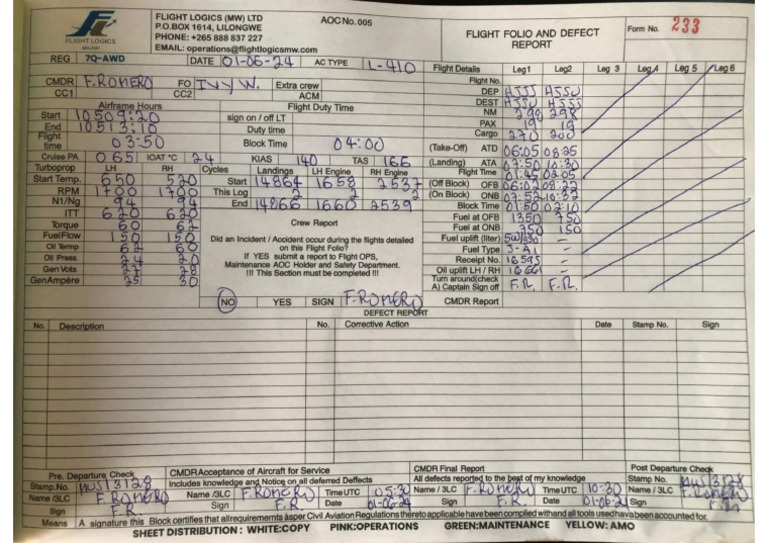 FLIGHT LOGICS
MALAWI
FLIGHT LOGICS (MW) LTD
P.O.BOX 1614, LILONGWE
PHONE: +265 888 837 227
EMAIL: operations@flightlogicsmw.com
AOC No. 005
FLIGHT FOLIO AND DEFECT REPORT
Form No. 233
REG 7Q-AWD DATE 01-06-24 AC TYPE L-410
Flight Details Leg1 Leg2 Leg 3 Leg 4 Leg 5 Leg 6
CMDR F.ROMERO FO IVY W. Extra crew
CC1 CC2 ACM
Flight No.
DEP HSSS HSSU
DEST HSSU HSSS
NM 298 298
PAX 19 19
Cargo 270 200
(Take-Off) ATD 06:05 08:25
(Landing) ATA 07:50 10:30
Flight Time 01:45 02:05
(Off Block) OFB 06:02 08:22
(On Block) ONB 07:52 10:32
Block Time 01:50 02:10
Fuel at OFB 1350 750
Fuel at ONB 350 150
Fuel uplift (liter)
Fuel Type J-A1 -
Receipt No. 16595 -
Oil uplift LH / RH 16661 -
Turn around(check
A) Captain Sign off F.R. F.R.
CMDR Report
Airframe Hours Flight Duty Time
Start 10509:20 sign on / off LT
End 10513:10 Duty time
Flight time 03:50 Block Time 04:00
Cruise PA 065 IOAT °C 24 KIAS 140 TAS 166
Turboprop LH RH Cycles Landings LH Engine RH Engine
Start Temp. 650 520 Start 14864 1658 2537
RPM 1700 1700 This Log 2 2 2
N1/Ng 94 94 End 14866 1660 2539
ITT 620 620
Torque 60 62
Fuel Flow 150 150
Oil Temp 62 60
Oil Press. 24 20
Gen Vots 27 28
Gen Ampère 25 30
Crew Report
Did an Incident / Accident occur during the flights detailed
on this Flight Folio?
If YES submit a report to Flight OPS,
Maintenance AOC Holder and Safety Department.
!!! This Section must be completed !!!
NO YES SIGN F.ROMERO
DEFECT REPORT
No. Description No. Corrective Action Date Stamp No. Sign
Pre. Departure Check
Stamp No. AUS13128
Name /3LC F.ROMERO
Sign F.R.
CMDR Acceptance of Aircraft for Service
Includes knowledge and Notice on all deferred Deffects
Name /3LC F.ROMERO Time UTC 05:30
Sign F.R. Date 01-06-24
CMDR Final Report
All defects reported to the best of my knowledge
Name / 3LC F.ROMERO Time UTC 10:30
Sign F.R. Date 01-06-24
Post Departure Check
Stamp No. AUS13128
Name / 3LC F.ROMERO
Sign F.R.
Means A signature this Block certifies that all requirements àsper Civil Aviation Regulations thereto applicable have been complied with and all tools used have been accounted for.
SHEET DISTRIBUTION : WHITE:COPY PINK:OPERATIONS GREEN:MAINTENANCE YELLOW: AMO